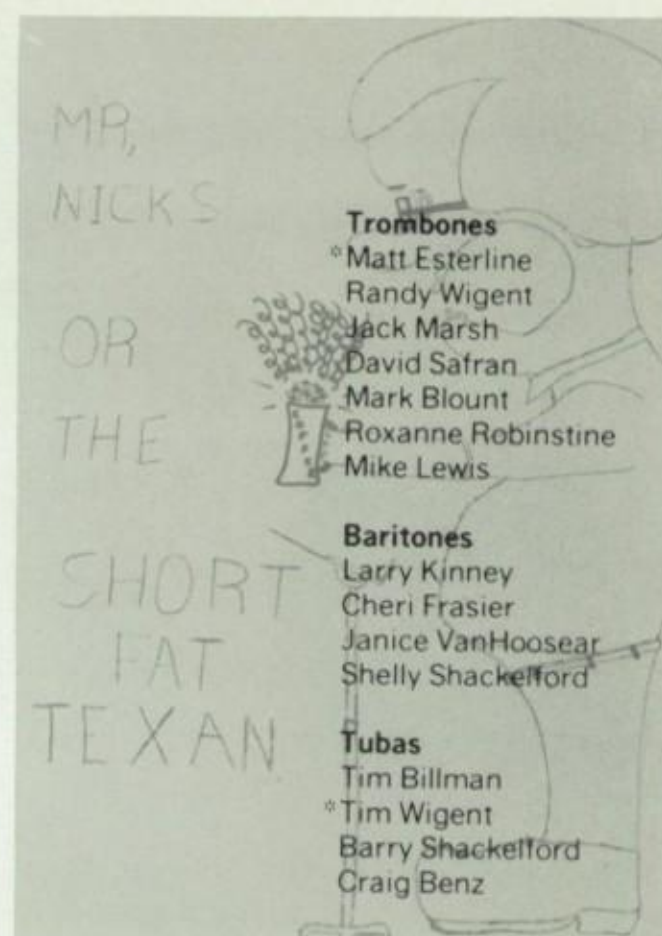 MR,
NICKS
OR
THE
SHORT
FAT
TEXAN
Trombones
*Matt Esterline
Randy Wigent
Jack Marsh
David Safran
Mark Blount
Roxanne Robinstine
Mike Lewis
Baritones
Larry Kinney
Cheri Frasier
Janice VanHoosear
Shelly Shackelford
Tubas
Tim Billman
*Tim Wigent
Barry Shackelford
Craig Benz